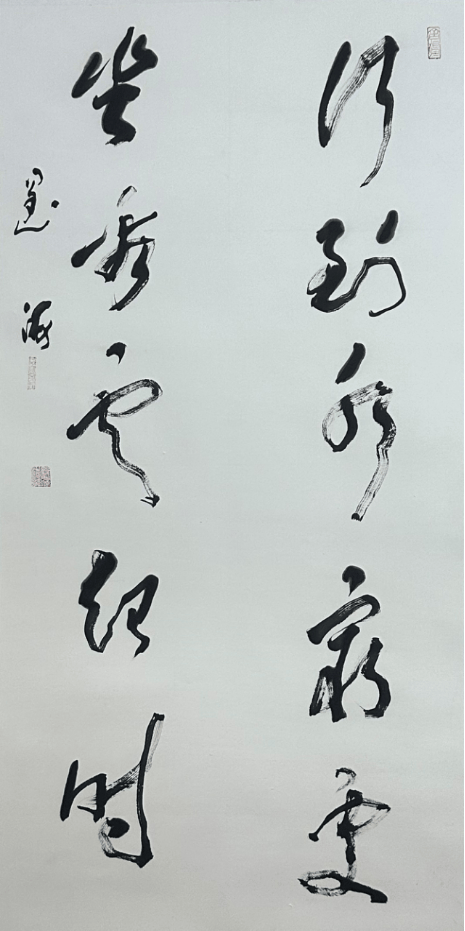 行到水窮處
坐看雲起時
墨海